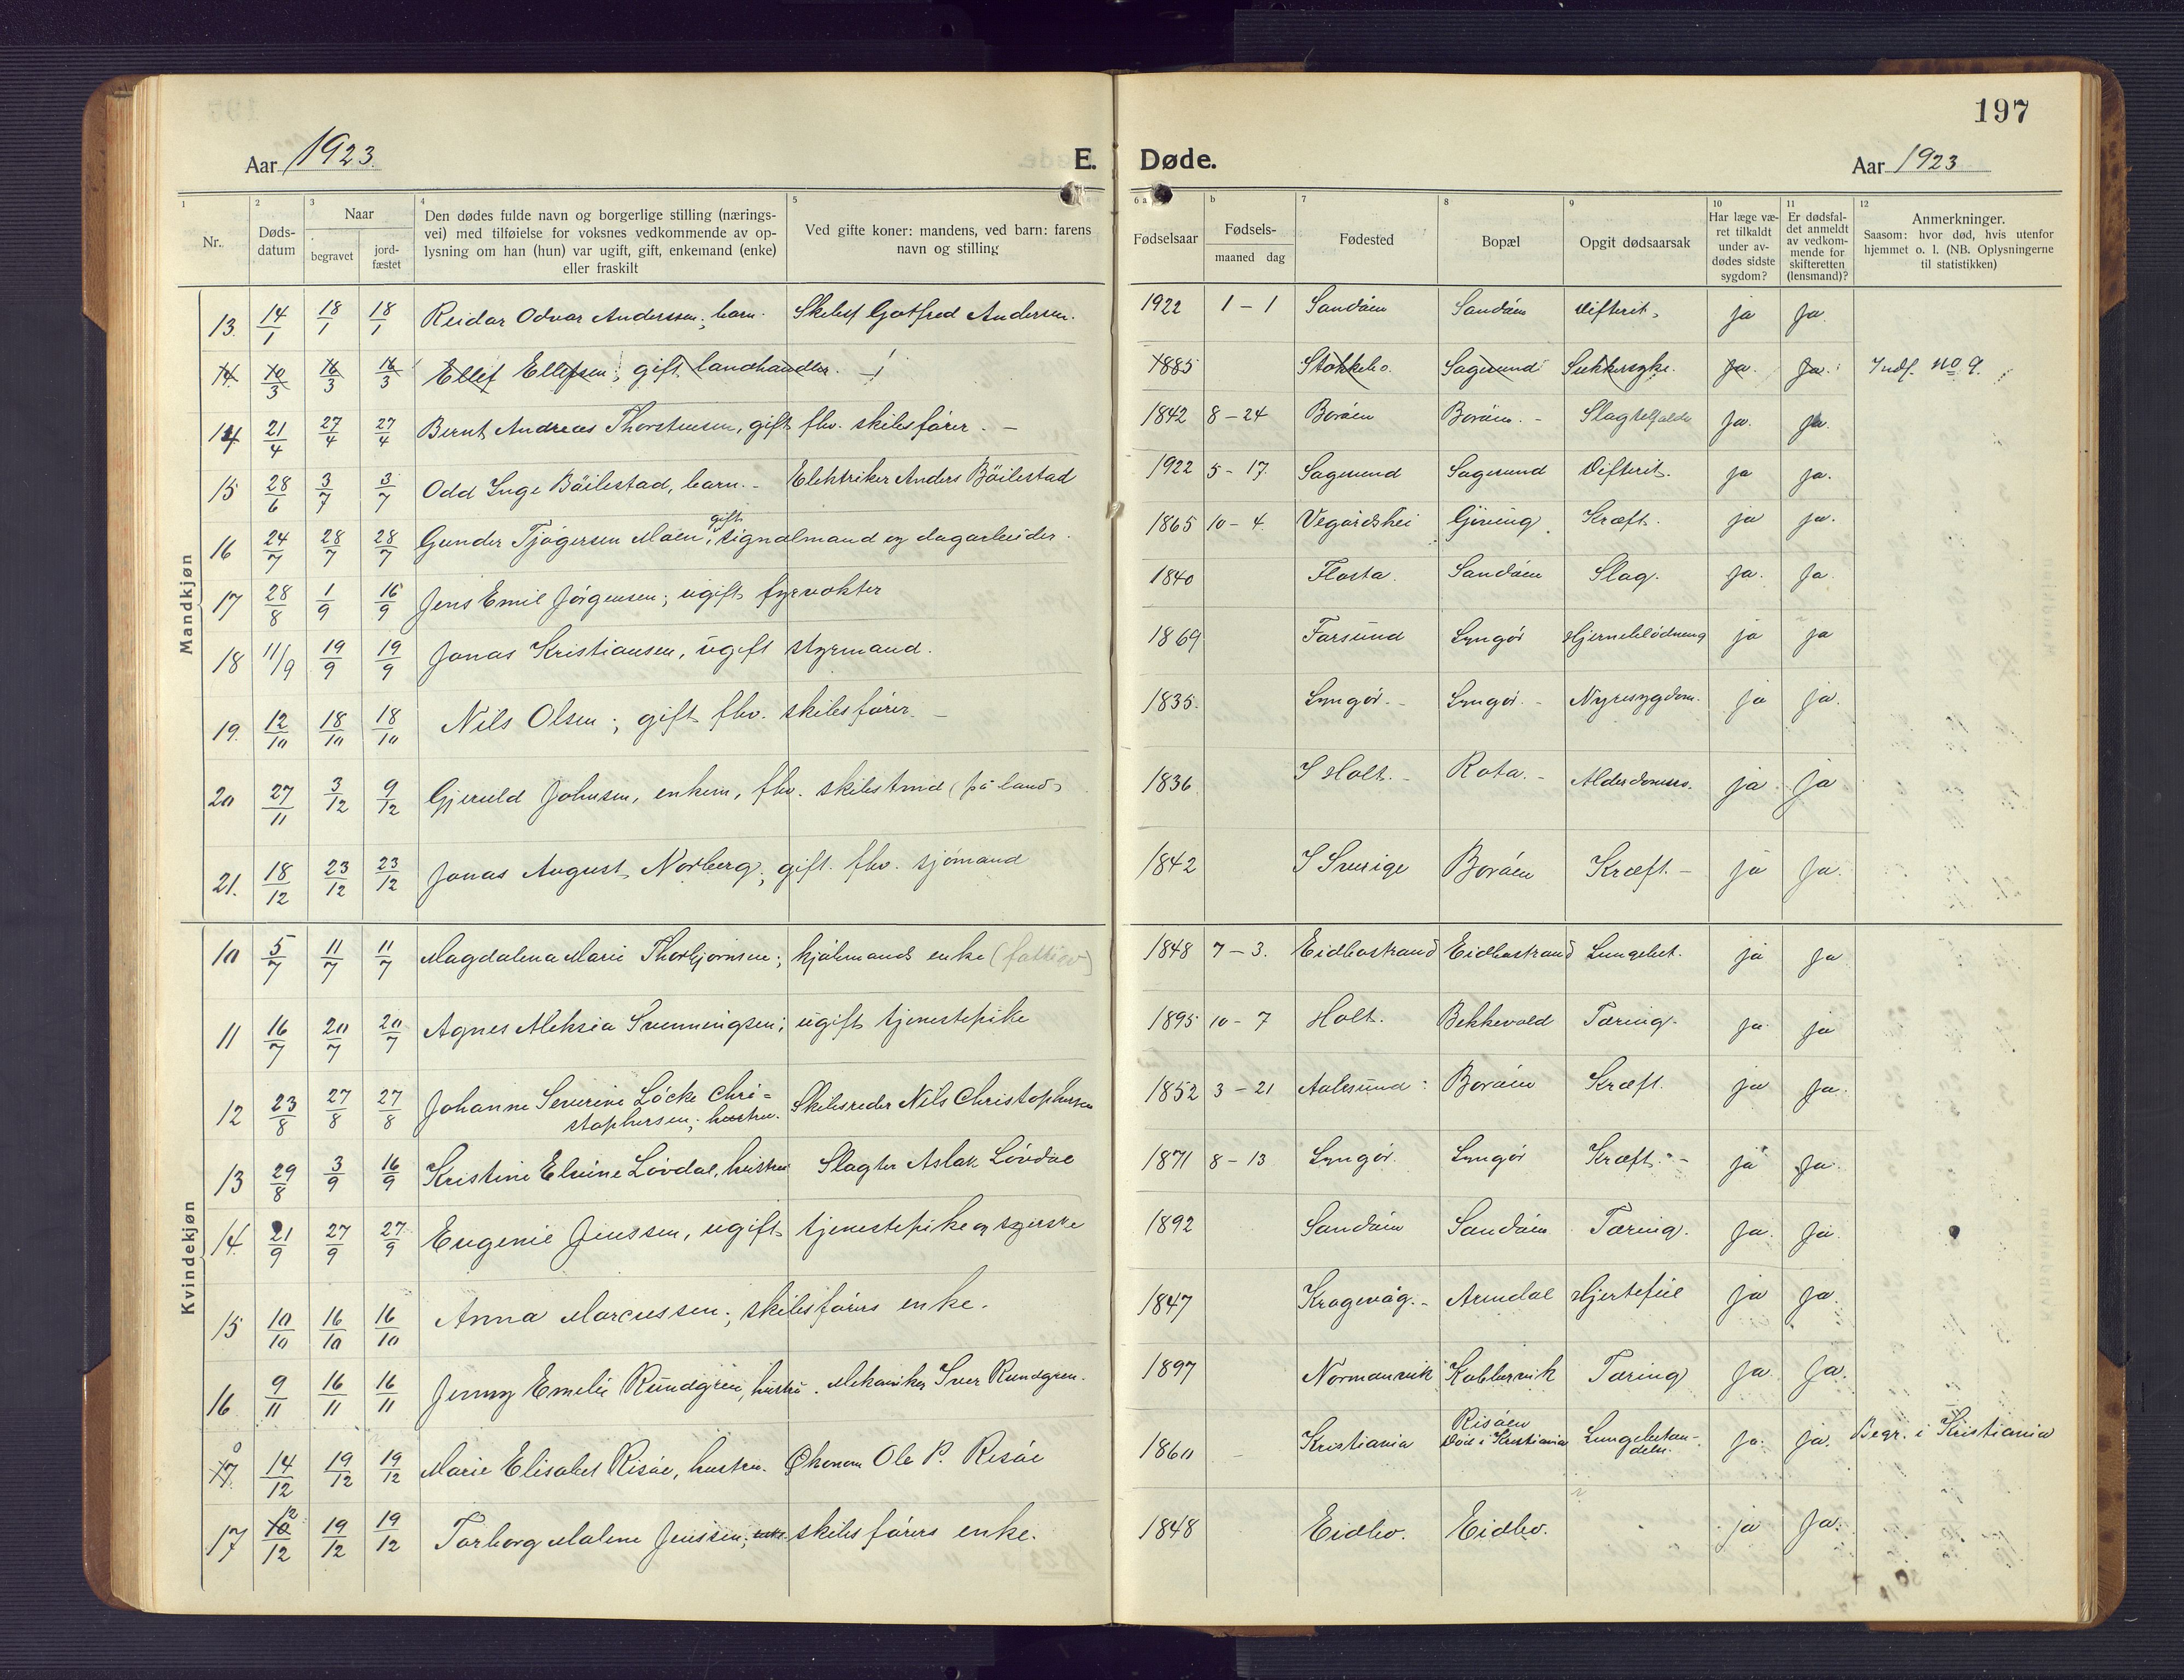 197
Aar 1923.
E. Døde.
Aar 1923
1 Nr.
2 Døds-datum
3 Naar begravet jord-fæstet
4 Den dødes fulde navn og borgerlige stilling (nærings-vei) med tilføielse for voksnes vedkommende av op-lysning om han (hun) var ugift, gift, enkemand (enke) eller fraskilt
5 Ved gifte koner: mandens, ved barn: farens navn og stilling
6 a Fødselsaar
b Fødsels- maaned dag
7 Fødested
8 Bopæl
9 Opgit dødsaarsak
10 Har læge væ-ret tilkaldt under av-dødes sidste sygdom?
11 Er dødsfal-det anmeldt av vedkom-mende for skifteretten (lensmand)?
12 Anmerkninger. Saasom: hvor død, hvis utenfor hjemmet o. l. (NB. Oplysningerne til statistikken)
Mandkjøn
13. 14/1 18/1 18/1 Reidar Odvar Anderssen; barn. Skibsf Gotfred Andersen. 1922 1 - 1 Sandøen Sandøen Difterit. ja Ja.
14. 10/3 16/3 16/3 Ellef Ellefsen; gift landhandler. 1885 Stokkebo. Sagesund Sukkersyke. Ja. Ja. Indf. no 9.
14 21/4 27/4 27/4 Bernt Andreas Thorstensen, gift fhv. skibsfører. - 1842 8 - 24 Borøen Borøen. - Slagtilfælde Ja. Ja.
15 28/6 3/7 3/7 Odd Inge Bøilestad, barn. - Elektriker Anders Bøilestad 1922 5 - 17 Sagesund Sagesund Difterit. ja ja.
16 24/7 28/7 28/7 Gunder Tjøgersen Moen, gift signalmand og dagarbeider. 1865 10 - 4. Vegårdshei Gjeving. Kræft. ja ja.
17 28/8 1/9 16/9 Jens Emil Jörgensen; ugift fyrvokter 1840 Flosta. Sandøen Slag. Ja. Ja.
18 11/9 19/9 19/9 Jonas Kristiansen, ugift styrmand. 1869 Farsund Lyngør Hjerneblødning ja ja
19. 12/10 18/10 18/10 Nils Olsen; gift fhv. skibsfører. - 1835. Lyngør. - Lyngør. - Nyresygdom. ja ja.
20 27/11 3/12 9/12 Gjeruld Johnsen, enkem, fhv. skibstmd (på land) 1836 I Holt. - Rota. - Alderdomss. ja ja
21. 18/12 23/12 23/12 Jonas August Norberg; gift. fhv. sjømand 1842 I Sverige Borøen Kræft. - ja Ja.
Kvindekjøn
10 5/7 11/7 11/7 Magdalena Marie Thorbjørnsen; kjølmands enke (fattiov) 1848 7 - 3. Eidbostrand Eidbostrand Lungebet. ja Ja
11 16/7 20/7 20/7 Agnes Aleksia Svenningsen; ugift tjenestepike 1895 10 - 7 Holt. Bekkevold Tæring. ja ja
12 23/8 27/8 27/8 Johanne Severine Löcke Chri=stophersen; hustru. Skibsreder Nils Christophersen 1852 3 - 21 Aalesund. Borøen Kræft. ja ja.
13 29/8 3/9 16/9 Kristine Elvine Løvdal, hustru Slagter Aslak Løvdal 1871 8 - 13 Lyngør. Lyngør Kræft. - ja Ja.
14 21/9 27/9 27/9 Eugenie Jenssen, ugift tjenestepike og syerske 1892 Sandøen Sandøen Tæring. Ja. Ja.
15 10/10 16/10 16/10 Anna Marcussen; skibsførers enke. 1847 Kragevåg. - Arendal Hjertefeil ja Ja.
16 9/11 16/11 16/11 Jenny Emilie Rundgren, hustru. Mekaniker Iver Rundgren. 1897 Normanvik Kablarvik Tæring Ja Ja.
17. 14/12 19/12 19/12 Marie Elisabet Risøe, hustru. Økonom Ole P. Risøe 1860 - Kristiania Risøen Död i Kristiania Lungebetæn-delse. Ja. Ja. Begr. i Kristiania
17 12/12 19/12 19/12 Torborg Malene Jenssen; enke. skibsførers enke. 1848 Eidbo. Eidbo. ja Ja.